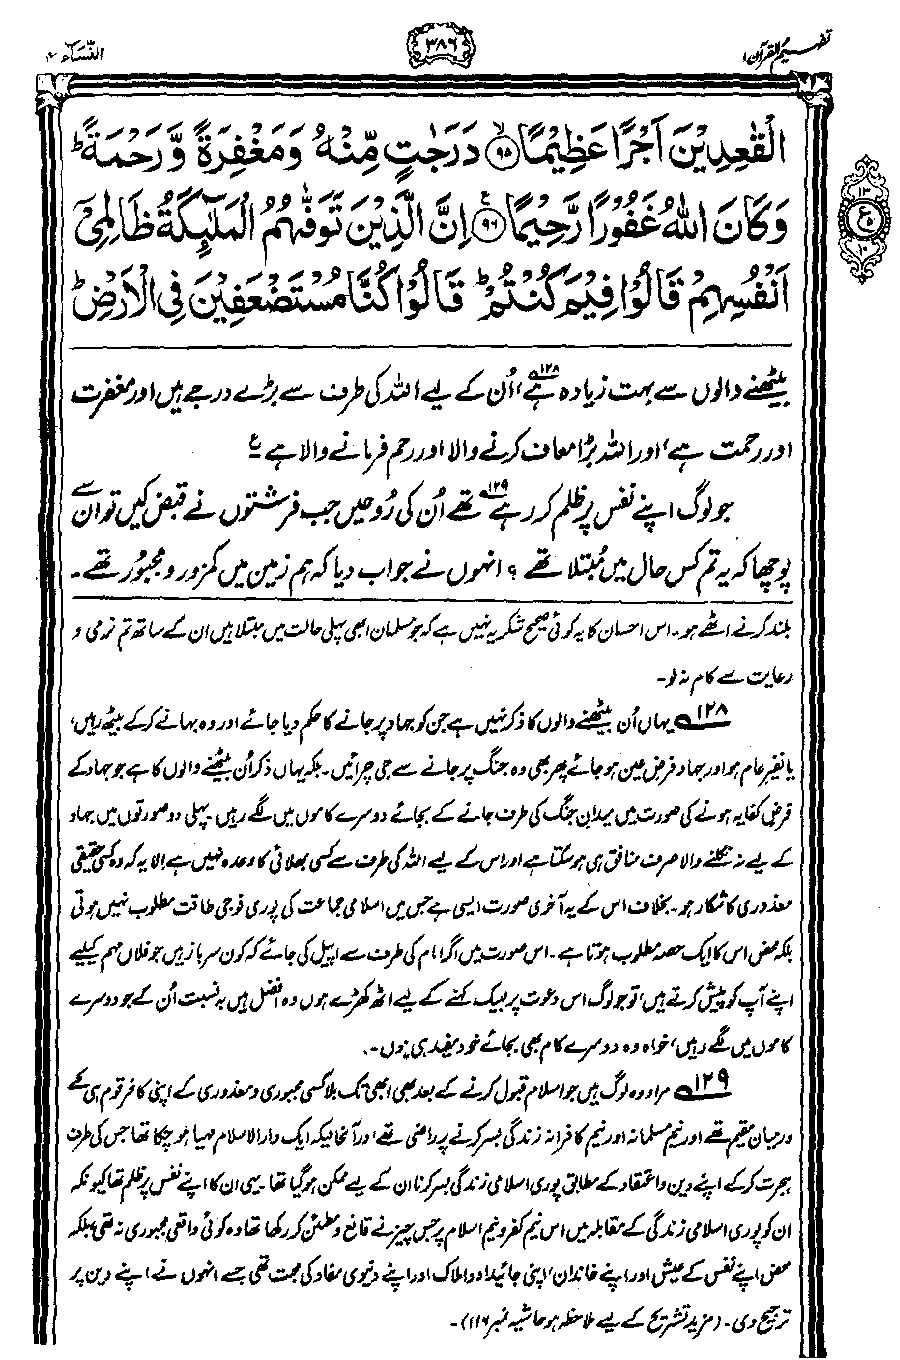 تفہیم القرآن ۱
۳۸۶
النّسَآء ۴
الْقٰعِدِيْنَ اَجْرًا عَظِيْمًا ۙ﴿۹۵﴾ دَرَجٰتٍ مِّنْهُ وَ مَغْفِرَةً وَّ رَحْمَةً ؕ
وَ كَانَ اللّٰهُ غَفُوْرًا رَّحِيْمًا ﴿۹۶﴾ ع اِنَّ الَّذِيْنَ تَوَفّٰىهُمُ الْمَلٰٓئِكَةُ ظَالِمِيْٓ
اَنْفُسِهِمْ قَالُوْا فِيْمَ كُنْتُمْ ؕ قَالُوْا كُنَّا مُسْتَضْعَفِيْنَ فِي الْاَرْضِ ؕ
۱۳
ع
۱۰
بیٹھنے والوں سے بہت زیادہ ہے۱۲۸، اُن کے لیے اللہ کی طرف سے بڑے درجے ہیں اور مغفرت
اور رحمت ہے، اور اللہ بڑا معاف کرنے والا اور رحم فرمانے والا ہے ع
جو لوگ اپنے نفس پر ظلم کر رہے۱۲۹ تھے اُن کی رُوحیں جب فرشتوں نے قبض کیں تو ان سے
پوچھا کہ یہ تم کس حال میں مُبتلا تھے ؟ انہوں نے جواب دیا کہ ہم زمین میں کمزور و مجبُور تھے۔
بلند کرنے اٹھے ہو۔ اس احسان کا یہ کوئی صحیح شکریہ نہیں ہے کہ جو مسلمان ابھی پہلی حالت میں مبتلا ہیں ان کے ساتھ تم نرمی و
رعایت سے کام نہ لو۔
۱۲۸ یہاں اُن بیٹھنے والوں کا ذکر نہیں ہے جن کو جہاد پر جانے کا حکم دیا جائے اور وہ بہانے کر کے بیٹھ رہیں،
یا نفیر عام ہو اور جہاد فرض عین ہو جائے پھر بھی وہ جنگ پر جانے سے جی چرائیں۔ بلکہ یہاں ذکر اُن بیٹھنے والوں کا ہے جو جہاد کے
فرض کفایہ ہونے کی صورت میں میدان جنگ کی طرف جانے کے بجائے دوسرے کاموں میں لگے رہیں۔ پہلی دو صورتوں میں جہاد
کے لیے نہ نکلنے والا صرف منافق ہی ہو سکتا ہے اور اس کے لیے اللہ کی طرف سے کسی بھلائی کا وعدہ نہیں ہے اِلا یہ کہ وہ کسی حقیقی
معذوری کا شکار ہو۔ بخلاف اس کے یہ آخری صورت ایسی ہے جس میں اسلامی جماعت کی پوری فوجی طاقت مطلوب نہیں ہوتی
بلکہ محض اس کا ایک حصہ مطلوب ہوتا ہے۔ اس صورت میں اگر امام کی طرف سے اپیل کی جائے کہ کون سرباز ہیں جو فلاں مہم کیلیے
اپنے آپ کو پیش کرتے ہیں، تو جو لوگ اس دعوت پر لبیک کہنے کے لیے اٹھ کھڑے ہوں وہ افضل ہیں بہ نسبت اُن کے جو دوسرے
کاموں میں لگے رہیں، خواہ وہ دوسرے کام بھی بجائے خود مفید ہی ہوں۔
۱۲۹ مراد وہ لوگ ہیں جو اسلام قبول کرنے کے بعد بھی ابھی تک بلا کسی مجبوری و معذوری کے اپنی کافر قوم ہی کے
درمیان مقیم تھے اور نیم مسلمانہ اور نیم کافرانہ زندگی بسر کرنے پر راضی تھے، درآنحالیکہ ایک دارالاسلام مہیا ہو چکا تھا جس کی طرف
ہجرت کر کے اپنے دین و اعتقاد کے مطابق پوری اسلامی زندگی بسر کرنا ان کے لیے ممکن ہو گیا تھا۔ یہی ان کا اپنے نفس پر ظلم تھا کیونکہ
ان کو پوری اسلامی زندگی کے مقابلہ میں اس نیم کفر و نیم اسلام پر جس چیز نے قانع و مطمئن کر رکھا تھا وہ کوئی واقعی مجبوری نہ تھی بلکہ
محض اپنے نفس کے عیش اور اپنے خاندان، اپنی جائیداد و املاک اور اپنے دنیوی مفاد کی محبت تھی جسے انہوں نے اپنے دین پر
ترجیح دی۔ (مزید تشریح کے لیے ملاحظہ ہو حاشیہ نمبر ۱۱۶)۔